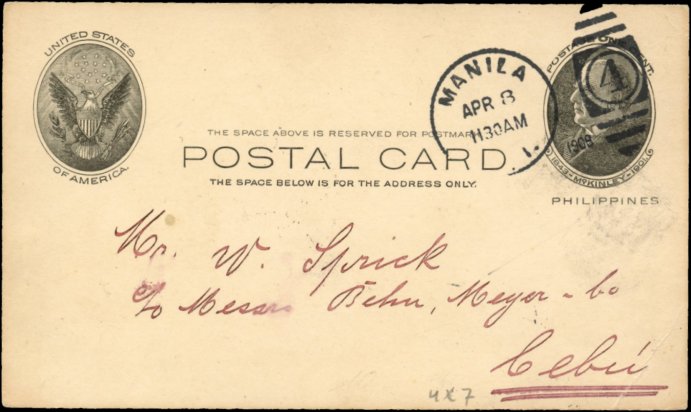 UNITED STATES
OF AMERICA.
MANILA
APR 8
1130AM
1.
1909
POSTAGE ONE CENT.
4
1843-McKINLEY-1901.
PHILIPPINES
THE SPACE ABOVE IS RESERVED FOR POSTMARK
POSTAL CARD.
THE SPACE BELOW IS FOR THE ADDRESS ONLY.
Mr. W. Sprick
c/o Messrs Behn, Meyer & Co
Cebú
4x7